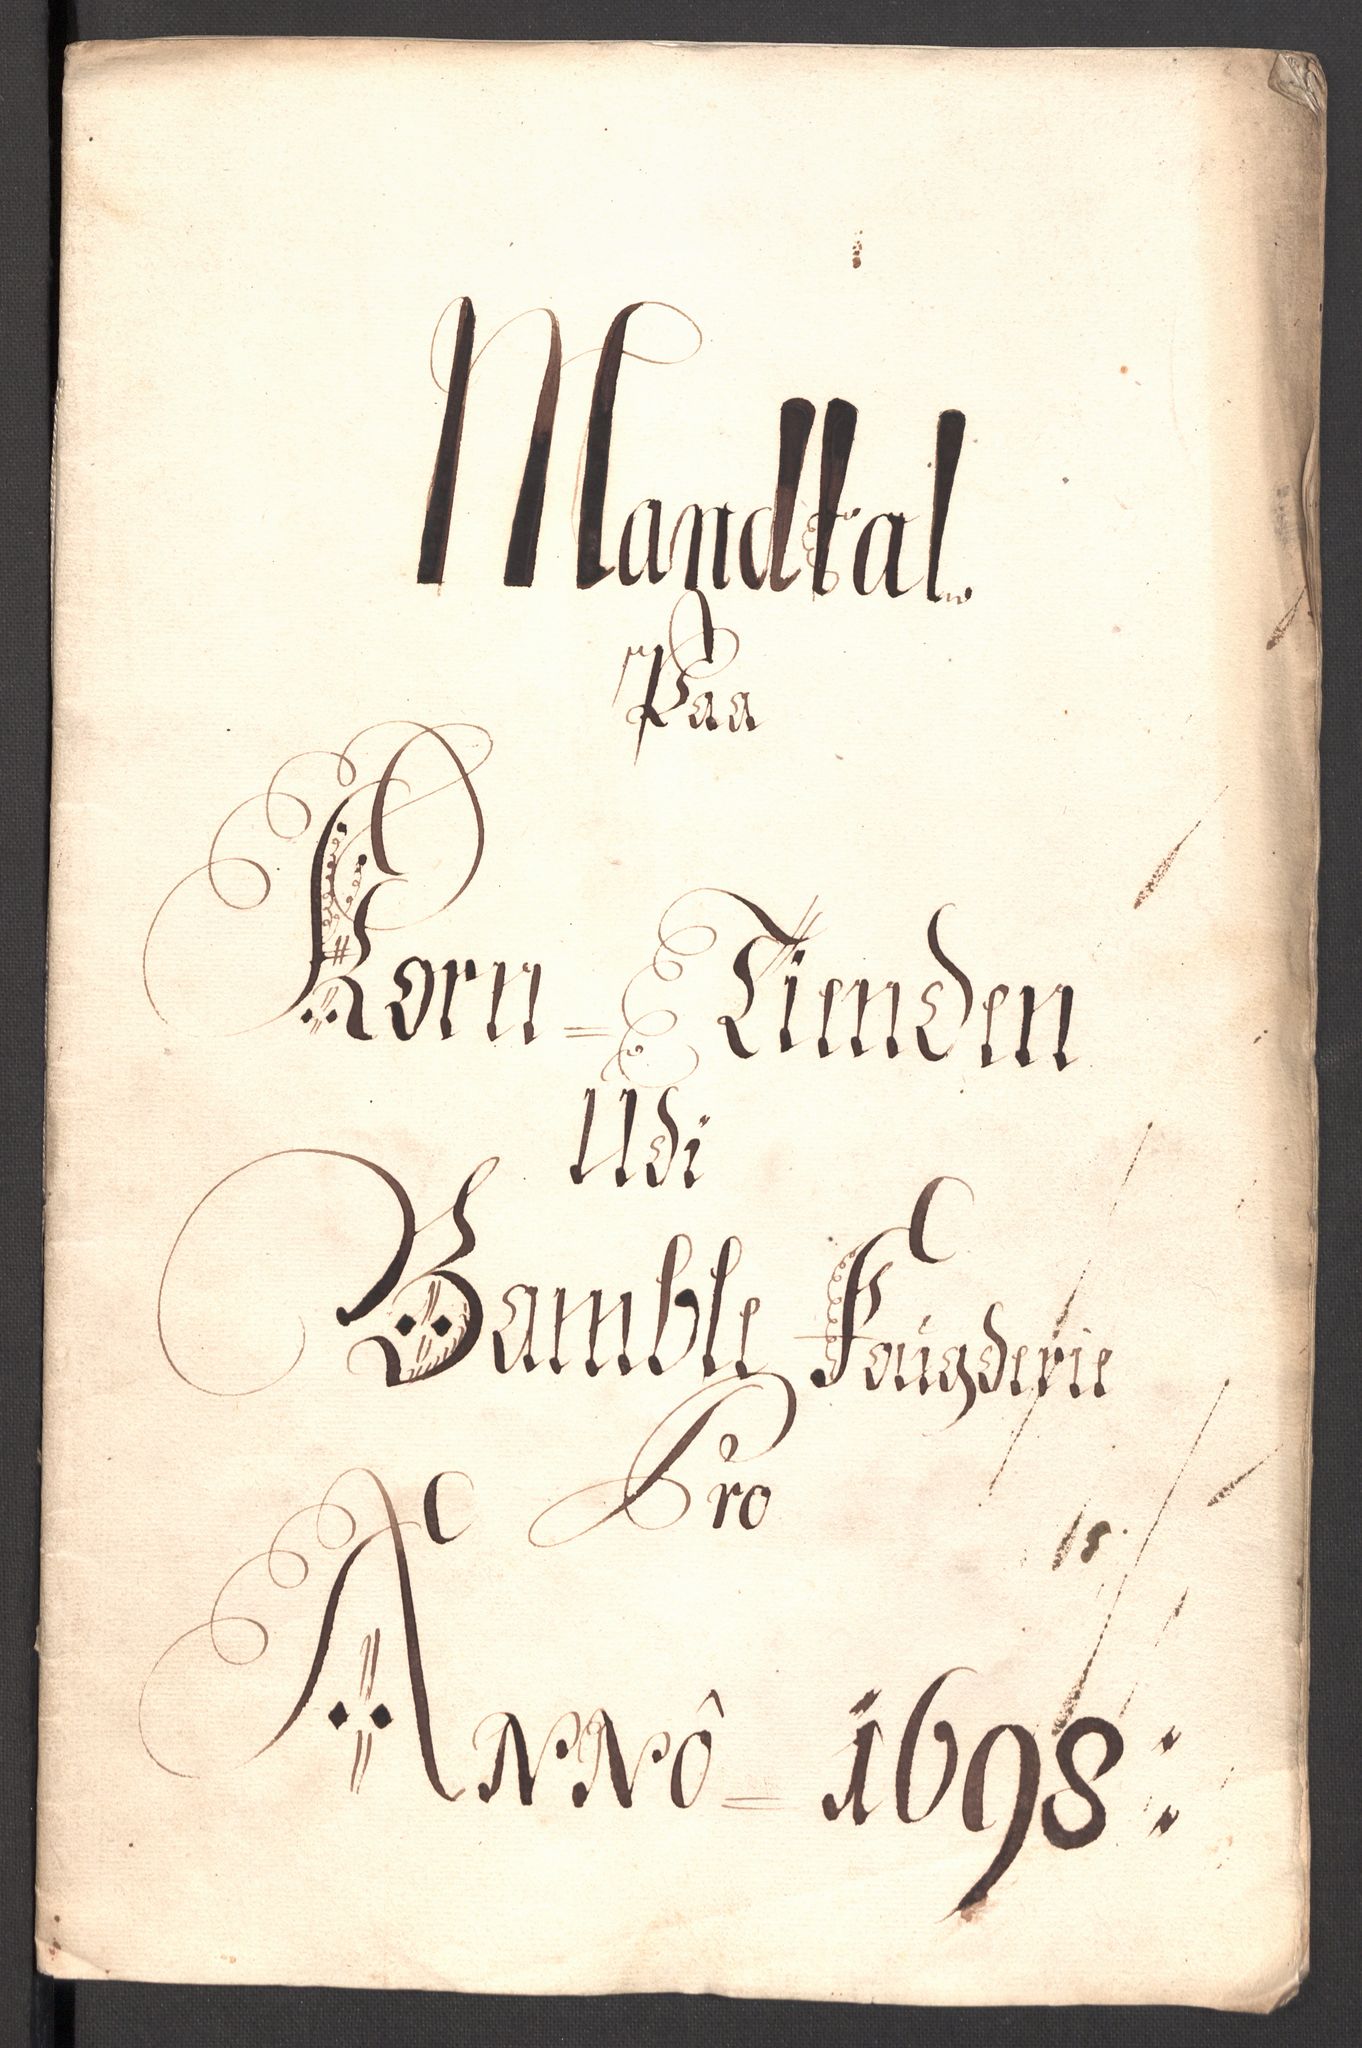 Mandtal.
Paa
Korn = Tienden
Udi
Bamble Fougderie
Pro
18.
Anno = 1698: